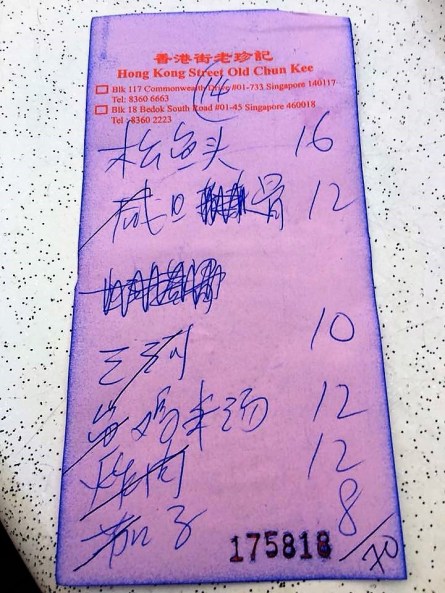 香港街老珍記
Hong Kong Street Old Chun Kee
Blk 117 Commonwealth Drive #01-733 Singapore 140117
Tel: 8360 6663
Blk 18 Bedok South Road #01-45 Singapore 460018
Tel : 8360 2223
松鱼头 16
咸旦 骨 12
三河 10
鸡 米汤 12
烤肉 12
茄子 8
175818 70